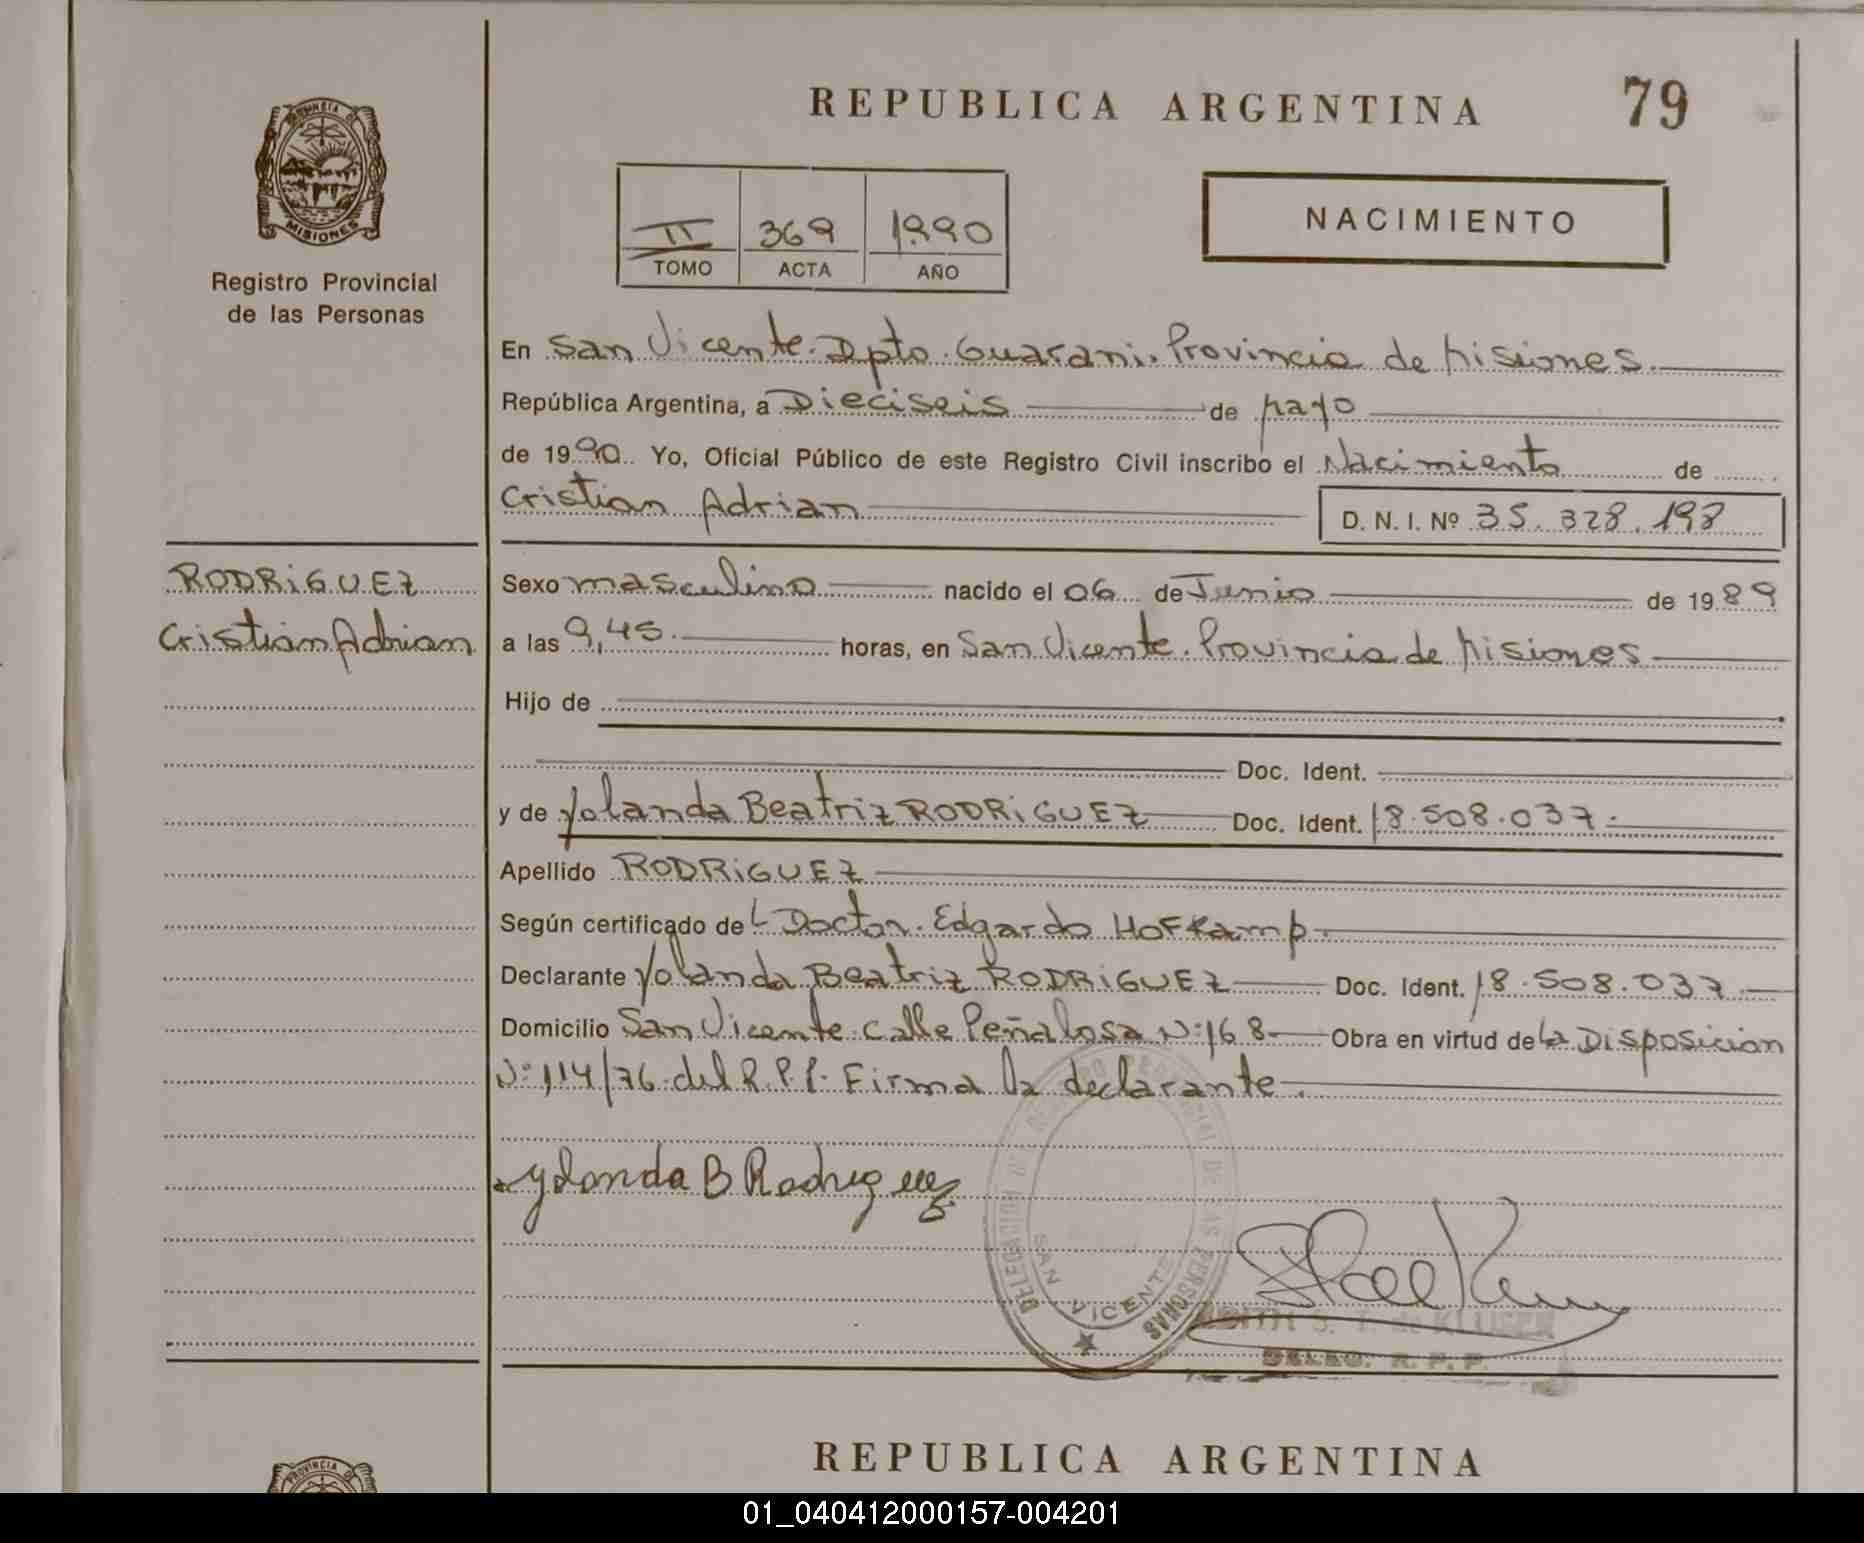 REPUBLICA ARGENTINA
79
PROVINCIA DE
MISIONES
Registro Provincial
de las Personas
II 369 1990
TOMO ACTA AÑO
NACIMIENTO
En San Vicente. Dpto. Guarani. Provincia de Misiones.
República Argentina, a Dieciseis de Mayo
de 1990. Yo, Oficial Público de este Registro Civil inscribo el Nacimiento de
Cristian Adrian
D. N. I. Nº 35.328.198
RODRIGUEZ
Cristian Adrian
Sexo masculino nacido el 06 de Junio de 1989
a las 9,45. horas, en San Vicente. Provincia de Misiones
Hijo de
Doc. Ident.
y de Yolanda Beatriz RODRIGUEZ Doc. Ident. 18.508.037.
Apellido RODRIGUEZ
Según certificado del Doctor. Edgardo HOFKamp.
Declarante Yolanda Beatriz RODRIGUEZ Doc. Ident. 18.508.037.
Domicilio San Vicente. Calle Peñalosa Nº 168 Obra en virtud de la Disposicion
Nº 114/76 del R.P.P. Firma la declarante.
Yolanda B Rodriguez
DELEGACION REGISTRO PROVINCIAL DE LAS PERSONAS
SAN VICENTE
S. T. de KLUSEN
DELEG. R. P. P.
REPUBLICA ARGENTINA
PROVINCIA DE
01_040412000157-004201